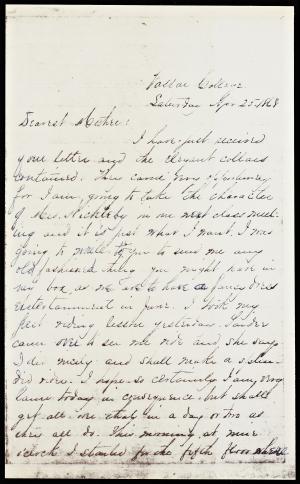 Vassar College
Saturday Apr 25 1868
Dearest Mother:
I have just received
your letter and the elegant collars
contained. They came very opportunely
for I am going to take the character
of Mrs. Nickleby in our next class meet-
ing and it is just what I want. I was
going to write to you to send me any
old fashioned thing you might have in
my box as we are to have a fancy dress
entertainment in June. I took my
first riding lesson yesterday.
came over to see me ride and she says
I did nicely and shall make a splen-
did rider. I hope so certainly. I am very
lame today in consequence but shall
get all over that in a day or two as
they all do. This morning at nine
o'clock I started for the fifth floor where